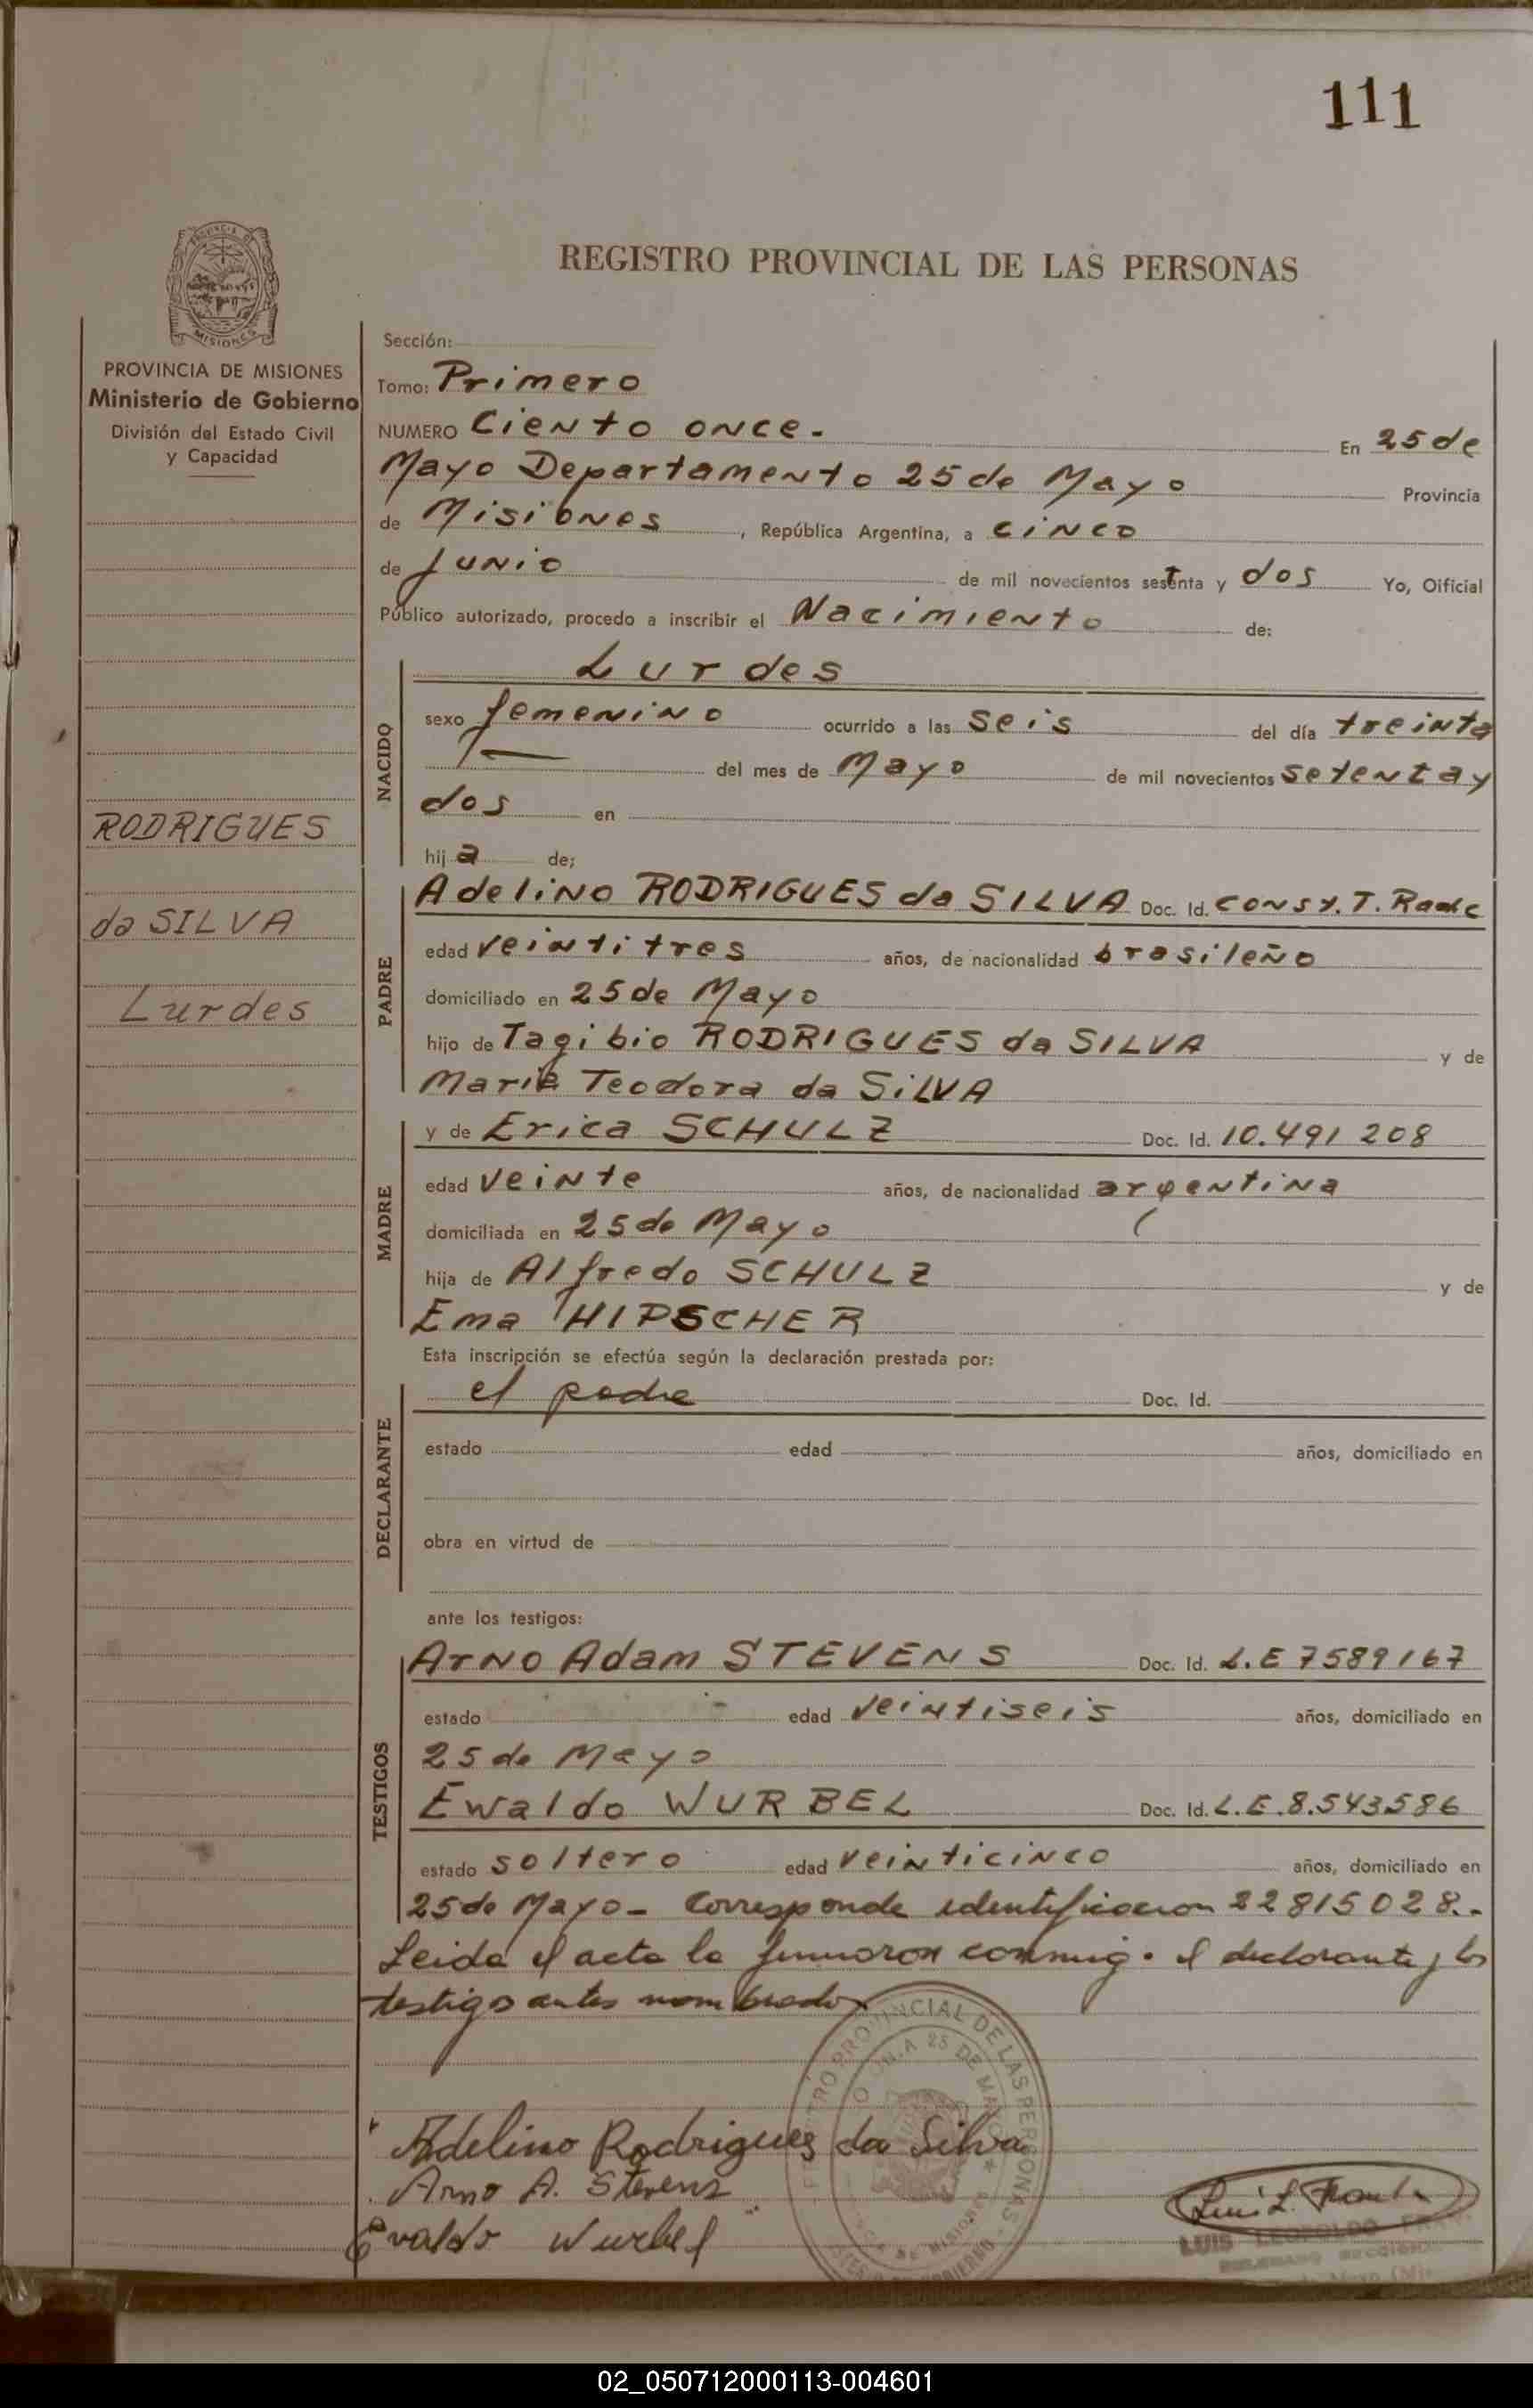 111
REGISTRO PROVINCIAL DE LAS PERSONAS
PROVINCIA DE MISIONES
Ministerio de Gobierno
División del Estado Civil
y Capacidad
RODRIGUES
da SILVA
Lurdes
Sección:
Tomo: Primero
NUMERO Ciento once. En 25 de
Mayo Departamento 25 de Mayo Provincia
de Misiones, República Argentina, a cinco
de junio de mil novecientos setenta y dos Yo, Oificial
Público autorizado, procedo a inscribir el Nacimiento de:
NACIDO
Lurdes
sexo femenino ocurrido a las seis del día treinta
del mes de Mayo de mil novecientos setenta y
dos en
hij a de;
PADRE
Adelino RODRIGUES da SILVA Doc. Id. const. T. Radc
edad veintitres años, de nacionalidad brasileño
domiciliado en 25 de Mayo
hijo de Tagibio RODRIGUES da SILVA y de
Maria Teodora da SILVA
MADRE
y de Erica SCHULZ Doc. Id. 10.491 208
edad veinte años, de nacionalidad argentina
domiciliada en 25 de Mayo
hija de Alfredo SCHULZ y de
Ema HIPSCHER
Esta inscripción se efectúa según la declaración prestada por:
DECLARANTE
el padre Doc. Id.
estado edad años, domiciliado en
obra en virtud de
ante los testigos:
TESTIGOS
Arno Adam STEVENS Doc. Id. L.E 7589167
estado edad veintiseis años, domiciliado en
25 de Mayo
Ewaldo WURBEL Doc. Id. L.E.8.543586
estado soltero edad veinticinco años, domiciliado en
25 de Mayo - Corresponde identificacion 22815028.-
Leida el acta la firmaron conmigo el declarante y los
testigos antes nombrados
Adelino Rodrigues da Silva
Arno A. Stevens
Evaldo Wurbel
LUIS LEOPOLDO
02_050712000113-004601